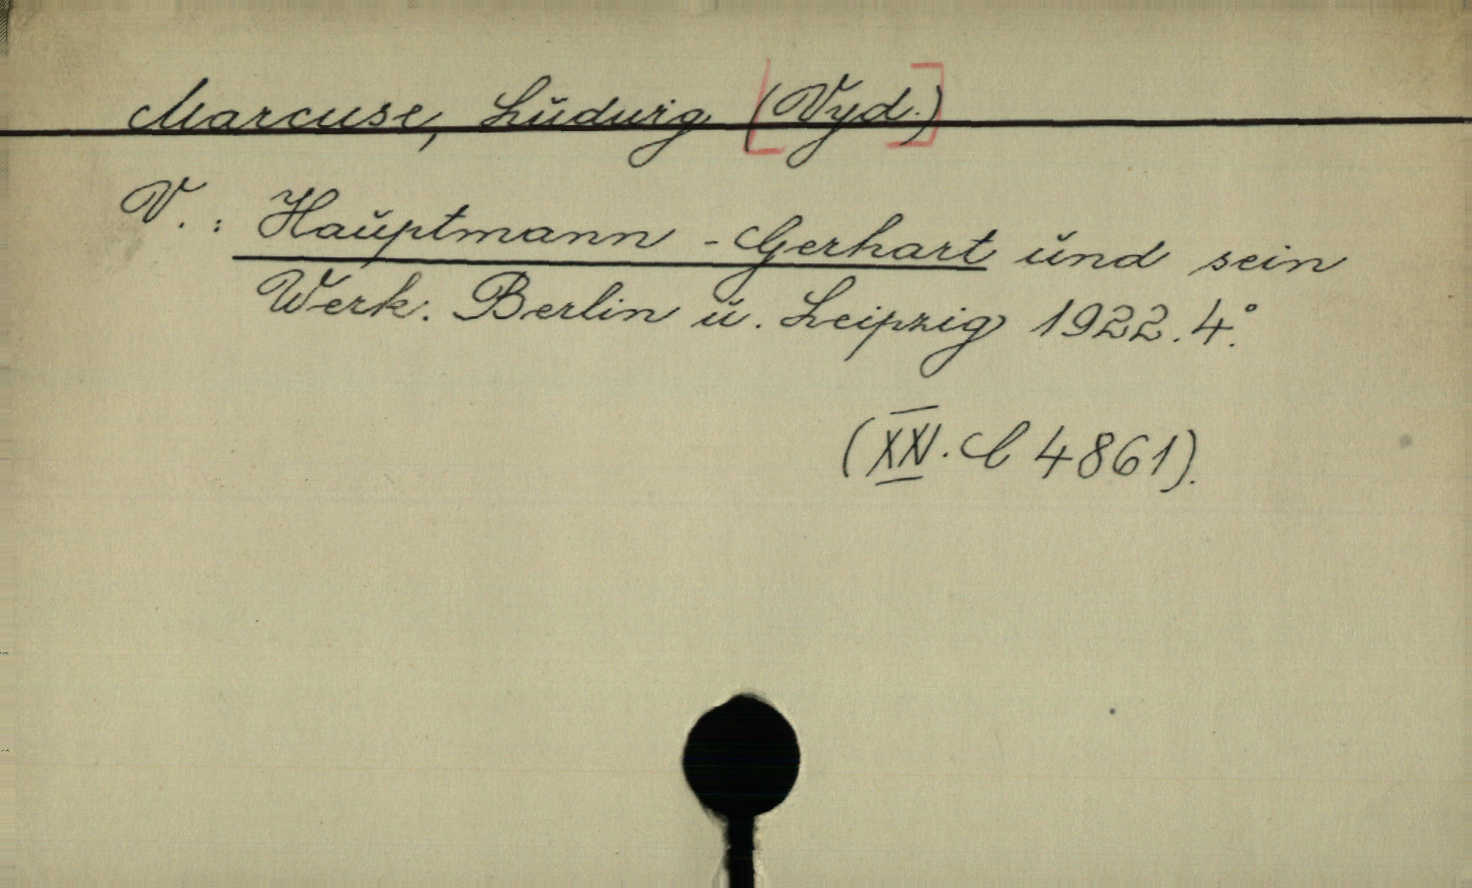 Marcuse, Ludwig [(Vyd.)]
V.: Hauptmann - Gerhart und sein
Werk. Berlin u. Leipzig 1922. 4°.
(XXV. C 4861).